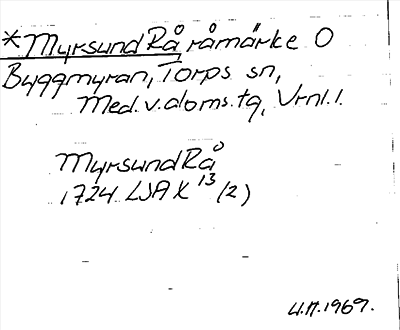 *Myrsund Rå råmärke O
Byggmyran, Torps sn,
Med. v. doms. tg, Vrml. l.
Myrsund Rå
1724 LSA K 13 (2)
1969.